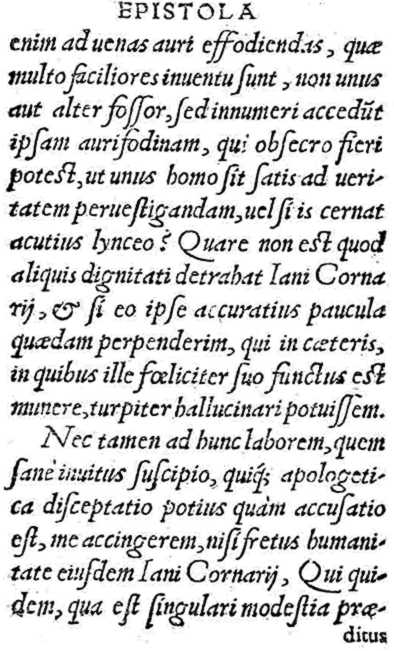 EPISTOLA
enim ad uenas auri effodiendas, quæ
multo faciliores inuentu sunt, non unus
aut alter fossor, sed innumeri accedũt
ipsam aurifodinam, qui obsecro fieri
potest, ut unus homo sit satis ad ueri-
tatem peruestigandam, uel si is cernat
acutius lynceo? Quare non est quod
aliquis dignitati detrahat Iani Corna
rij, & si eo ipse accuratius paucula
quædam perpenderim, qui in cæteris,
in quibus ille fœliciter suo functus est
munere, turpiter hallucinari potuissem.
Nec tamen ad hunc laborem, quem
sanè inuitus suscipio, quiq́; apologeti-
ca disceptatio potius quàm accusatio
est, me accingerem, nisi fretus humani-
tate eiusdem Iani Cornarij, Qui qui-
dem, qua est singulari modestia præ-
ditus